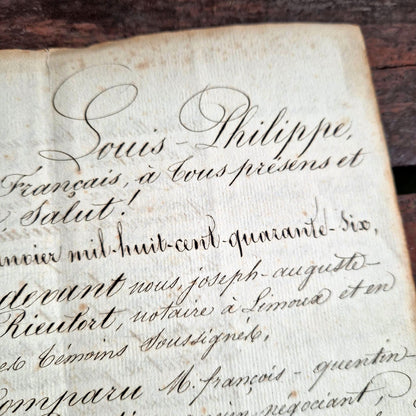 Louis-Philippe,
Français, à tous présens et
Salut!
janvier mil-huit-cent-quarante-six,
devant nous, joseph-auguste
Rieufort, notaire à Limoux et en
témoins soussignés,
Comparu M. françois-quentin
négociant,